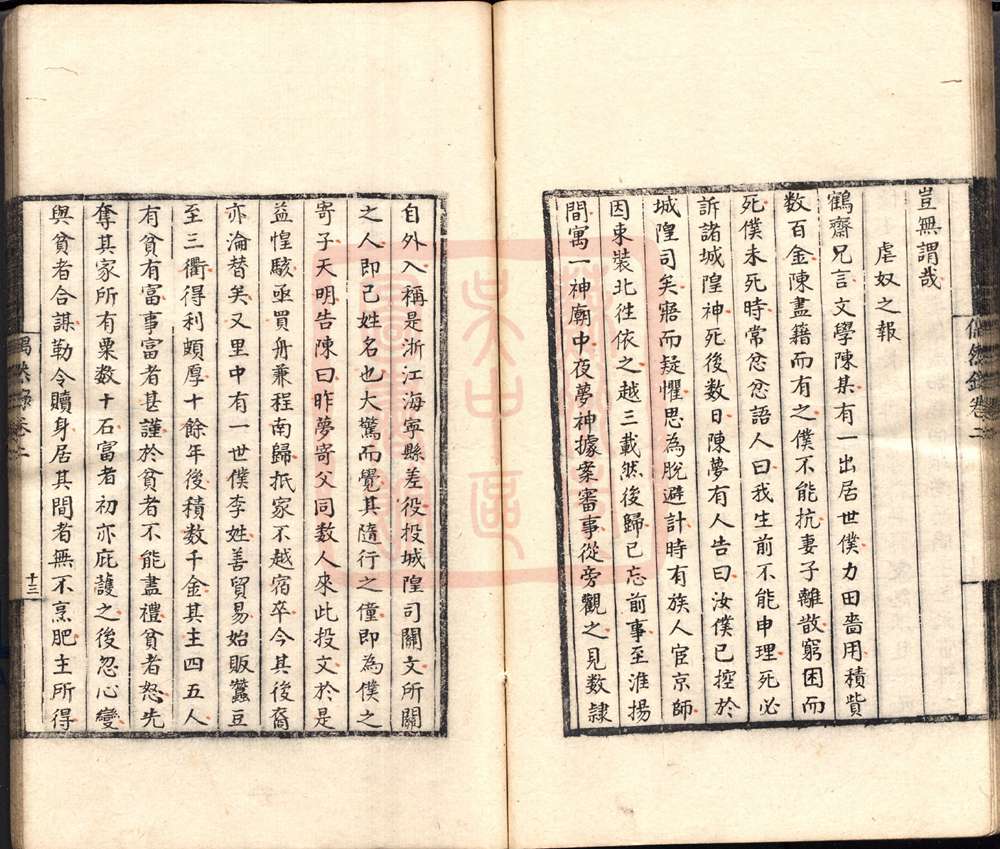 豈無謂哉
虐奴之報
鶴齋兄言文學陳某有一出居世僕力田嗇用積貲
數百金陳盡籍而有之僕不能抗妻子離散窮困而
死僕未死時常忿忿語人曰我生前不能申理死必
訴諸城隍神死後數日陳夢有人告曰汝僕已控於
城隍司矣寤而疑懼思為脫避計時有族人宦京師
因束裝北徃依之越三載然後歸已忘前事至淮揚
間寓一神廟中夜夢神據案審事從旁觀之見数隸
自外入稱是浙江海寧縣差役投城隍司關文所關
之人即已姓名也大驚而覺其隨行之僮即為僕之
寄子天明告陳曰昨夢寄父同数人來此投文於是
益惶駭亟買舟兼程南歸抵家不越宿卒今其後裔
亦淪替矣又里中有一世僕李姓善貿易始販蠶豆
至三衢得利頗厚十餘年後積数千金其主四五人
有貧有富事富者甚謹於貧者不能盡禮貧者怒先
奪其家所有粟数十石富者初亦庇護之後忽心變
與貧者合謀勒令贖身居其間者無不烹肥主所得
十三